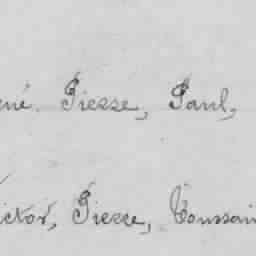 ené. Pierre, Paul,
ictor, Pierre, Toussain